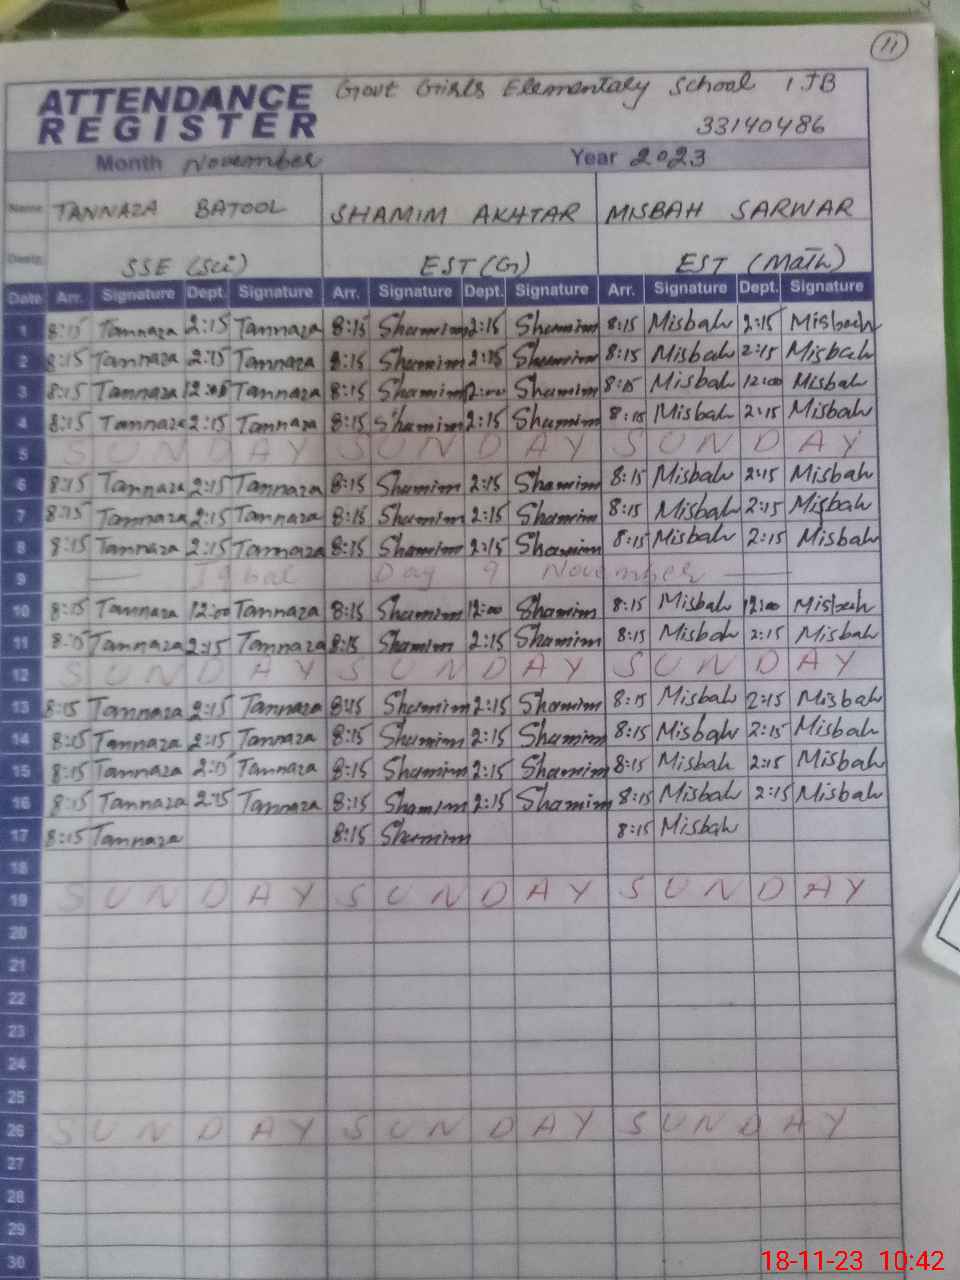 11
ATTENDANCE REGISTER Govt Girls Elementary School 1 JB
33140486
Month November Year 2023
Name TANNAZA BATOOL SHAMIM AKHTAR MISBAH SARWAR
Desig. SSE (Sci) EST (G) EST (Math)
Date Arr. Signature Dept. Signature Arr. Signature Dept. Signature Arr. Signature Dept. Signature
1 8:15 Tannaza 2:15 Tannaza 8:15 Shamim 2:15 Shamim 8:15 Misbah 2:15 Misbah
2 8:15 Tannaza 2:15 Tannaza 8:15 Shamim 2:15 Shamim 8:15 Misbah 2:15 Misbah
3 8:15 Tannaza 12:00 Tannaza 8:15 Shamim 12:00 Shamim 8:15 Misbah 12:00 Misbah
4 8:15 Tannaza 2:15 Tannaza 8:15 Shamim 2:15 Shamim 8:15 Misbah 2:15 Misbah
5 S U N D A Y S U N D A Y S U N D A Y
6 8:15 Tannaza 2:15 Tannaza 8:15 Shamim 2:15 Shamim 8:15 Misbah 2:15 Misbah
7 8:15 Tannaza 2:15 Tannaza 8:15 Shamim 2:15 Shamim 8:15 Misbah 2:15 Misbah
8 8:15 Tannaza 2:15 Tannaza 8:15 Shamim 2:15 Shamim 8:15 Misbah 2:15 Misbah
9 — Iqbal Day 9 November —
10 8:15 Tannaza 12:00 Tannaza 8:15 Shamim 12:00 Shamim 8:15 Misbah 12:00 Misbah
11 8:15 Tannaza 2:15 Tannaza 8:15 Shamim 2:15 Shamim 8:15 Misbah 2:15 Misbah
12 S U N D A Y S U N D A Y S U N D A Y
13 8:15 Tannaza 2:15 Tannaza 8:15 Shamim 2:15 Shamim 8:15 Misbah 2:15 Misbah
14 8:15 Tannaza 2:15 Tannaza 8:15 Shamim 2:15 Shamim 8:15 Misbah 2:15 Misbah
15 8:15 Tannaza 2:15 Tannaza 8:15 Shamim 2:15 Shamim 8:15 Misbah 2:15 Misbah
16 8:15 Tannaza 2:15 Tannaza 8:15 Shamim 2:15 Shamim 8:15 Misbah 2:15 Misbah
17 8:15 Tannaza 8:15 Shamim 8:15 Misbah
18
19 S U N D A Y S U N D A Y S U N D A Y
20
21
22
23
24
25
26 S U N D A Y S U N D A Y S U N D A Y
27
28
29
30
18-11-23 10:42